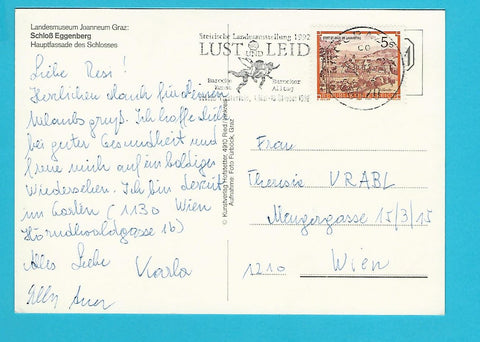 Landesmuseum Joanneum Graz:
Schloß Eggenberg
Hauptfassade des Schlosses
Liebe Resi!
Herzlichen dank für deinen
Urlaubsgruß. Ich hoffe dich
bei guter Gesundheit und
freue mich auf ein baldiges
Wiedersehen. Ich bin derzeit
im Garten (1130 Wien
Hörndlwaldgasse 16)
Alles Liebe
Karla
© Kunstverlag Hofstetter, 4910 Ried
Aufnahme: Foto Fürböck, Graz
Steirische Landesausstellung 1992
LUST UND LEID
Barocke Kunst
Barocker Alltag
5 S
Frau
Theresia VRABL
Mengergasse 15/3/15
1210 Wien